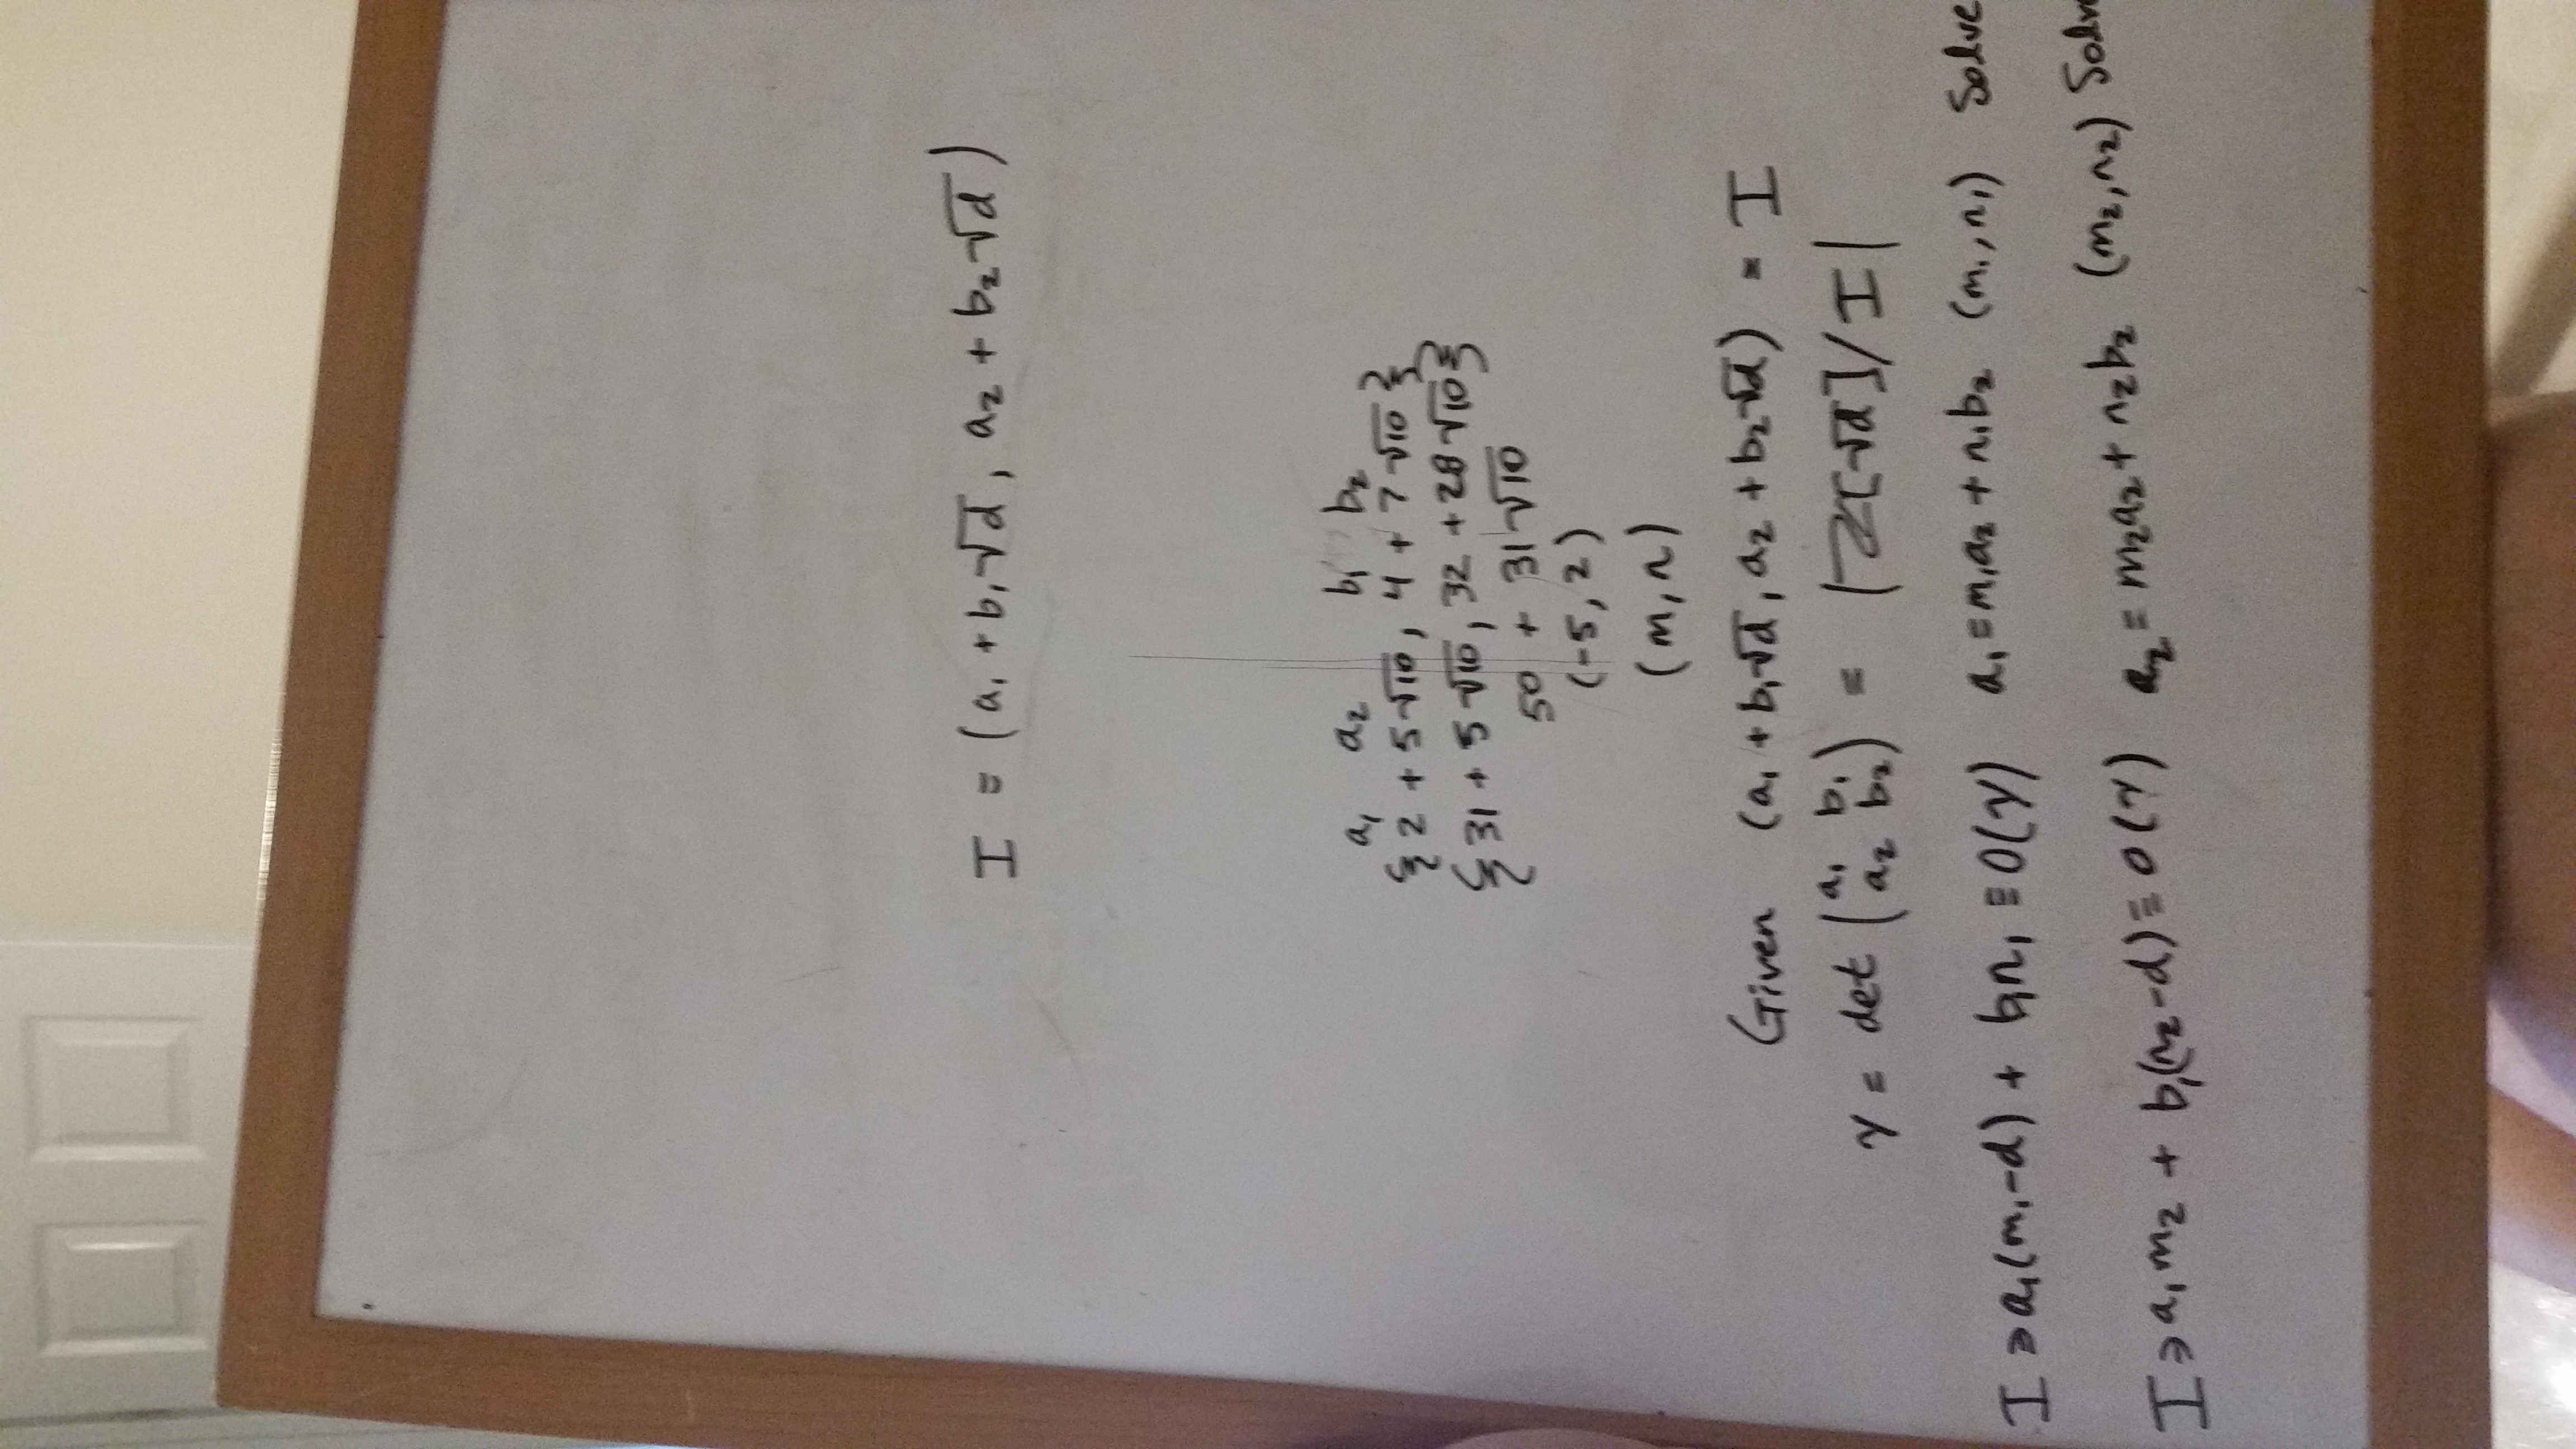 I = (a₁ + b₁√d, a₂ + b₂√d)
a₁ a₂ b₁ b₂
{2 + 5√10, 4 + 7√10}
{31 + 5√10, 32 + 28√10}
50 + 31√10
(-5, 2)
(m, n)
Given (a₁ + b₁√d, a₂ + b₂√d) = I
γ = det (a₁ b₁ a₂ b₂) = |ℤ[√d]/I|
I ∋ a₁(m₁-d) + b₁n₁ ≡ 0(γ) a₁ = m₁a₂ + n₁b₂ (m₁, n₁) Solve
I ∋ a₁m₂ + b₁(n₂-d) ≡ 0(γ) a₂ = m₂a₂ + n₂b₂ (m₂, n₂) Solve